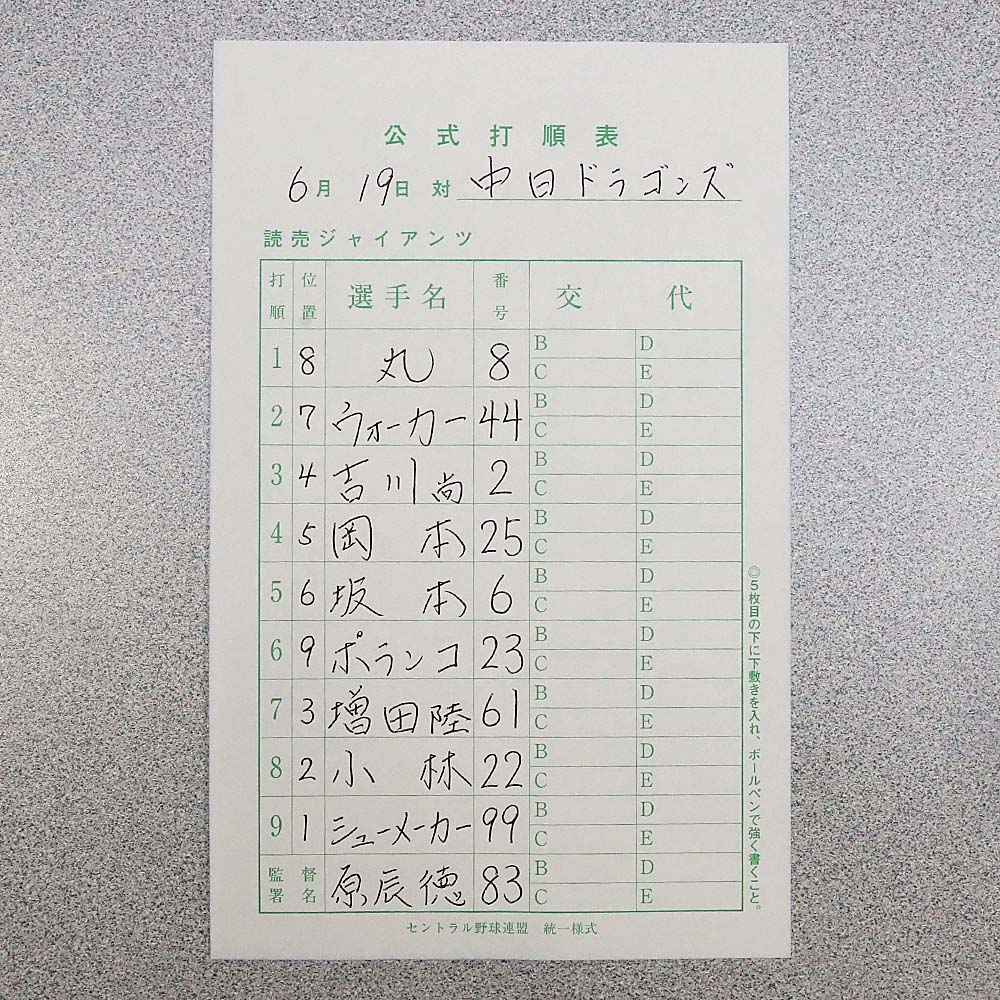 公式打順表
6月 19日 対 中日ドラゴンズ
読売ジャイアンツ
打順 位置 選手名 番号 交代
1 8 丸 8 B D C E
2 7 ウォーカー 44 B D C E
3 4 吉川尚 2 B D C E
4 5 岡本 25 B D C E
5 6 坂本 6 B D C E
6 9 ポランコ 23 B D C E
7 3 増田陸 61 B D C E
8 2 小林 22 B D C E
9 1 シューメーカー 99 B D C E
監督署名 原辰徳 83 B D C E
◎5枚目の下に下敷きを入れ、ボールペンで強く書くこと。
セントラル野球連盟 統一様式